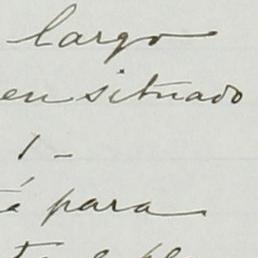 largo
en situado
1 -
tá para